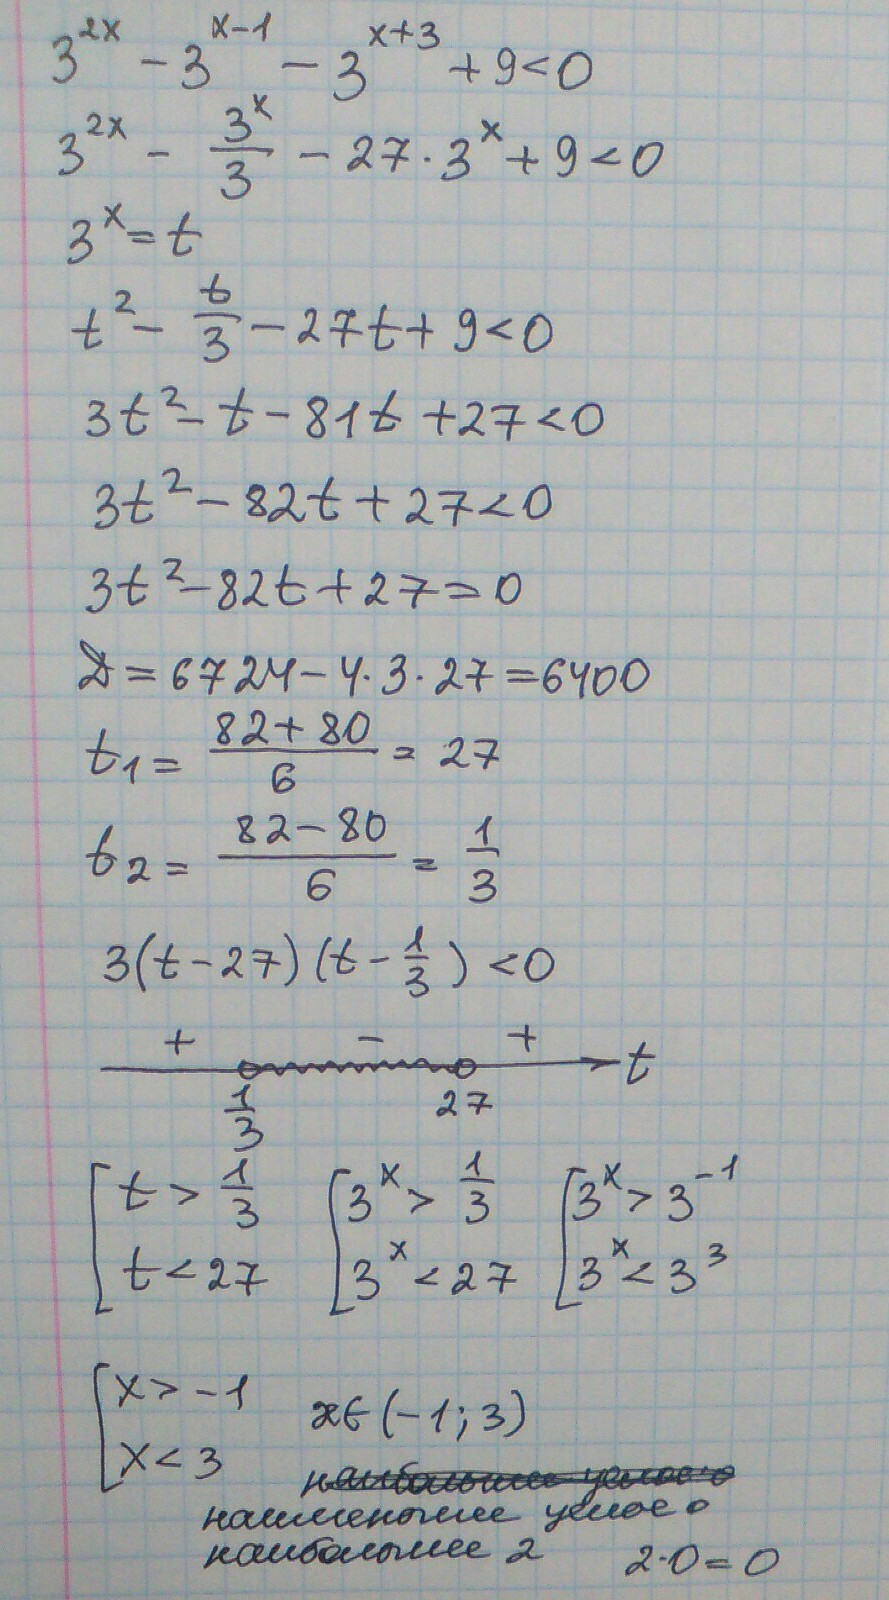 3^{2x} - 3^{x-1} - 3^{x+3} + 9 < 0
3^{2x} - \frac{3^x}{3} - 27 · 3^x + 9 < 0
3^x = t
t^2 - \frac{t}{3} - 27t + 9 < 0
3t^2 - t - 81t + 27 < 0
3t^2 - 82t + 27 < 0
3t^2 - 82t + 27 = 0
D = 6724 - 4 · 3 · 27 = 6400
t_1 = \frac{82 + 80}{6} = 27
t_2 = \frac{82 - 80}{6} = \frac{1}{3}
3(t - 27)(t - \frac{1}{3}) < 0
+ - + t
\frac{1}{3} 27
[ t > \frac{1}{3} [ 3^x > \frac{1}{3} [ 3^x > 3^{-1}
t < 27 3^x < 27 3^x < 3^3
[ x > -1
x ∈ (-1; 3)
x < 3
наименьшее целое 0
наибольшее 2 2·0 = 0